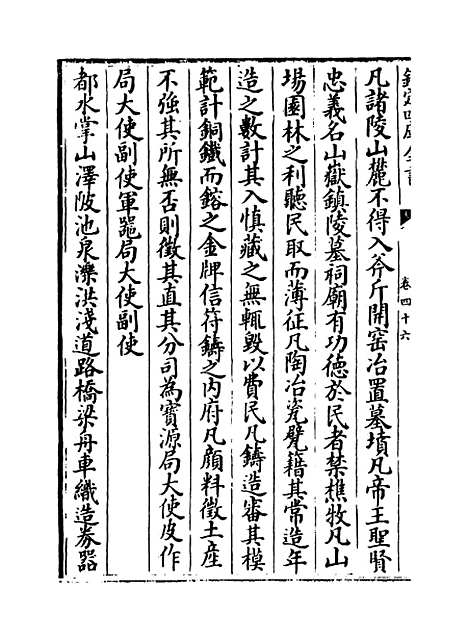 欽定四庫全書
卷四十六
凡諸陵山麓不得入斧斤開窑冶置墓墳凡帝王聖賢
忠義名山嶽鎮陵墓祠廟有功徳於民者禁樵牧凡山
場園林之利聽民取而薄征凡陶冶瓷甓籍其常造年
造之數計其入慎藏之無輒毀以費民凡鑄造審其模
範計銅鐵而鎔之金牌信符鑄之内府凡顔料徵土産
不强其所無否則徵其直其分司為寳源局大使皮作
局大使副使軍噐局大使副使
都水掌山澤陂池泉濼洪淺道路橋梁舟車織造券器